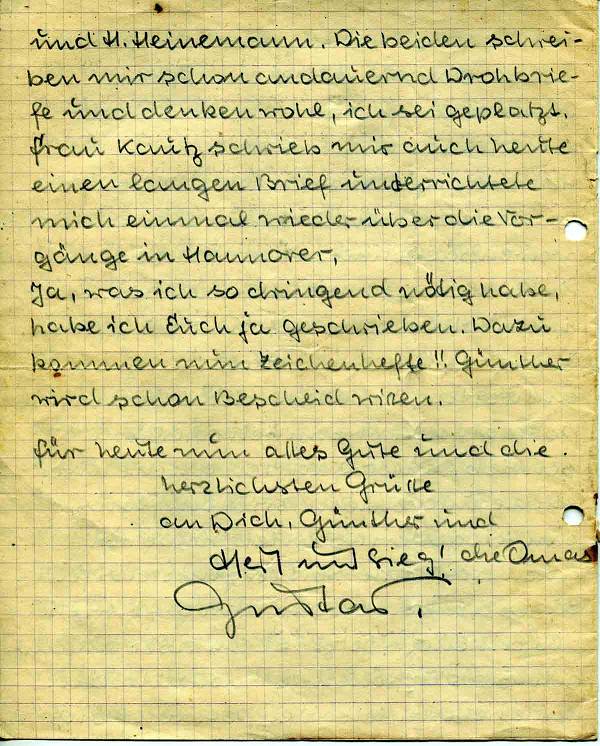 und H. Heinemann. Die beiden schrei-
ben mir schon andauernd Drohbrie-
fe und denken wohl, ich sei geplatzt.
Frau Kautz schrieb mir auch heute
einen langen Brief unterrichtete
mich einmal wieder über die Vor-
gänge in Hannover,
Ja, was ich so dringend nötig habe,
habe ich Euch ja geschrieben. Dazu
kommen nun Zeichenhefte!! Günther
wird schon Bescheid wissen.
Für heute nun alles Gute und die
herzlichsten Grüße
an Dich, Günther und
Heil und Sieg! die Omas
Gustav.